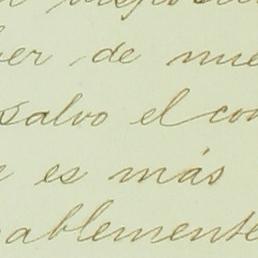 ber de nue
salvo el con
es más
ablemente